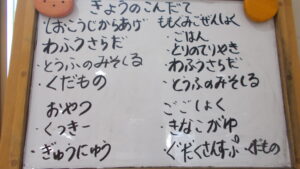 きょうのこんだて
しおこうじからあげ
・わふうさらだ
・とうふのみそしる
・くだもの
おやつ
・くっきー
・ぎゅうにゅう
ももぐみごぜんしょく
・ごはん
・とりのてりやき
・わふうさらだ
・とうふのみそしる
ごごしょく
・きなこがゆ
・ぐだくさんすーぷ・くだもの